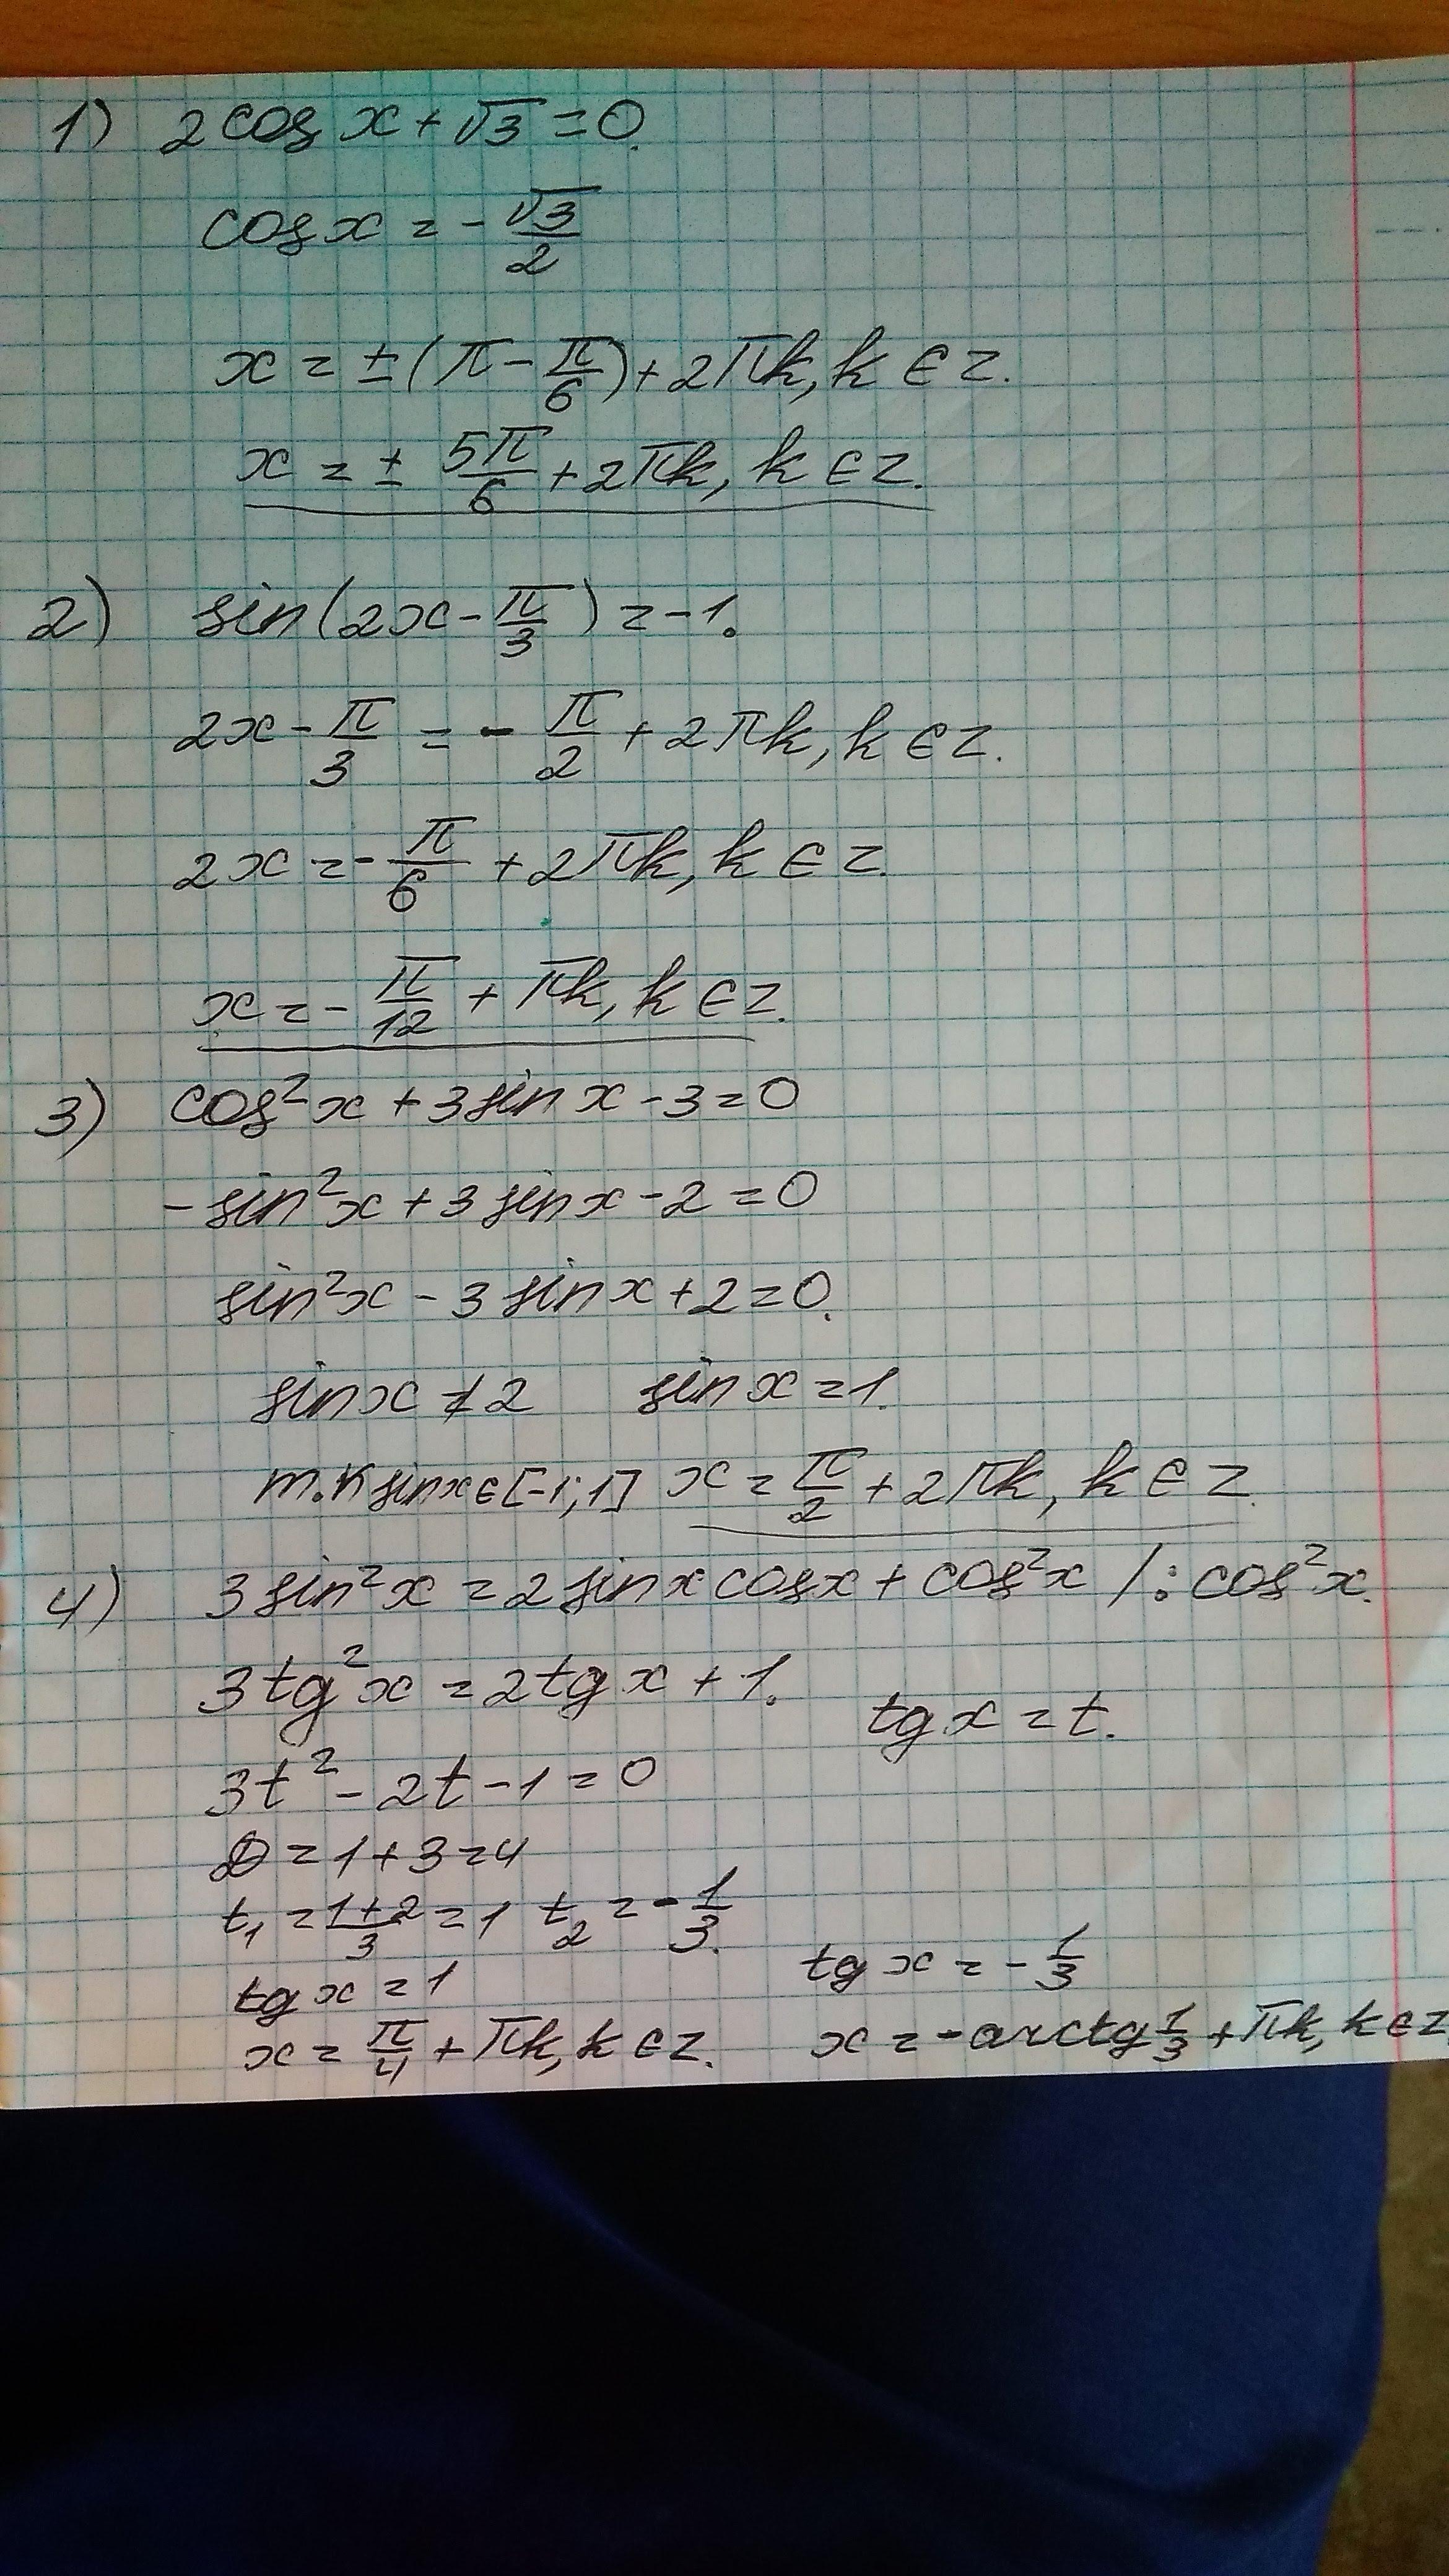 1) 2cos x + √3 = 0.
cos x = - √3/2
x = ± (π - π/6) + 2πk, k ∈ z.
x = ± 5π/6 + 2πk, k ∈ z.
2) sin(2x - π/3) = -1.
2x - π/3 = - π/2 + 2πk, k ∈ z.
2x = - π/6 + 2πk, k ∈ z.
x = - π/12 + πk, k ∈ z.
3) cos²x + 3sin x - 3 = 0
- sin²x + 3 sin x - 2 = 0
sin²x - 3 sin x + 2 = 0.
sin x ≠ 2 sin x = 1.
т.к sin x ∈ [-1; 1] x = π/2 + 2πk, k ∈ z.
4) 3 sin²x = 2 sin x cos x + cos²x /: cos²x.
3tg²x = 2tg x + 1.
tg x = t.
3t² - 2t - 1 = 0
D = 1 + 3 = 4
t₁ = (1+2)/3 = 1 t₂ = - 1/3.
tg x = 1 tg x = - 1/3
x = π/4 + πk, k ∈ z. x = - arctg 1/3 + πk, k ∈ z